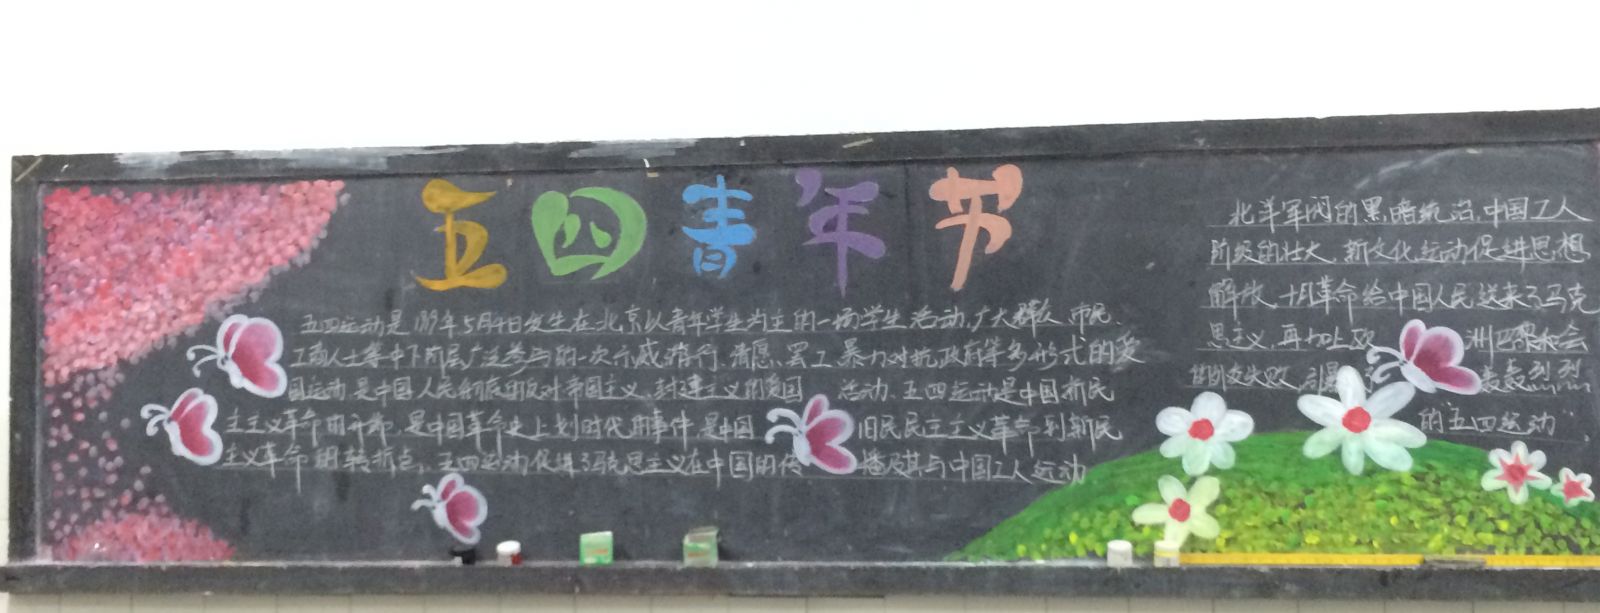 五四青年节
五四运动是1919年5月4日发生在北京以青年学生为主的一场学生活动,广大群众、市民、
工商人士等中下阶层广泛参与的一次示威游行、请愿、罢工、暴力对抗政府等多形式的爱
国运动,是中国人民彻底的反对帝国主义、封建主义的爱国活动、五四运动是中国新民
主主义革命的开端,是中国革命史上划时代的事件,是中国旧民民主主义革命到新民
主义革命的转折点,五四运动促进了马克思主义在中国的传播及其与中国工人运动
北洋军阀的黑暗统治,中国工人
阶级的壮大,新文化运动促进思想
解放、十月革命给中国人民送来了马克
思主义,再加上欧洲巴黎和会
失败,轰轰烈烈
的“五四运动”.